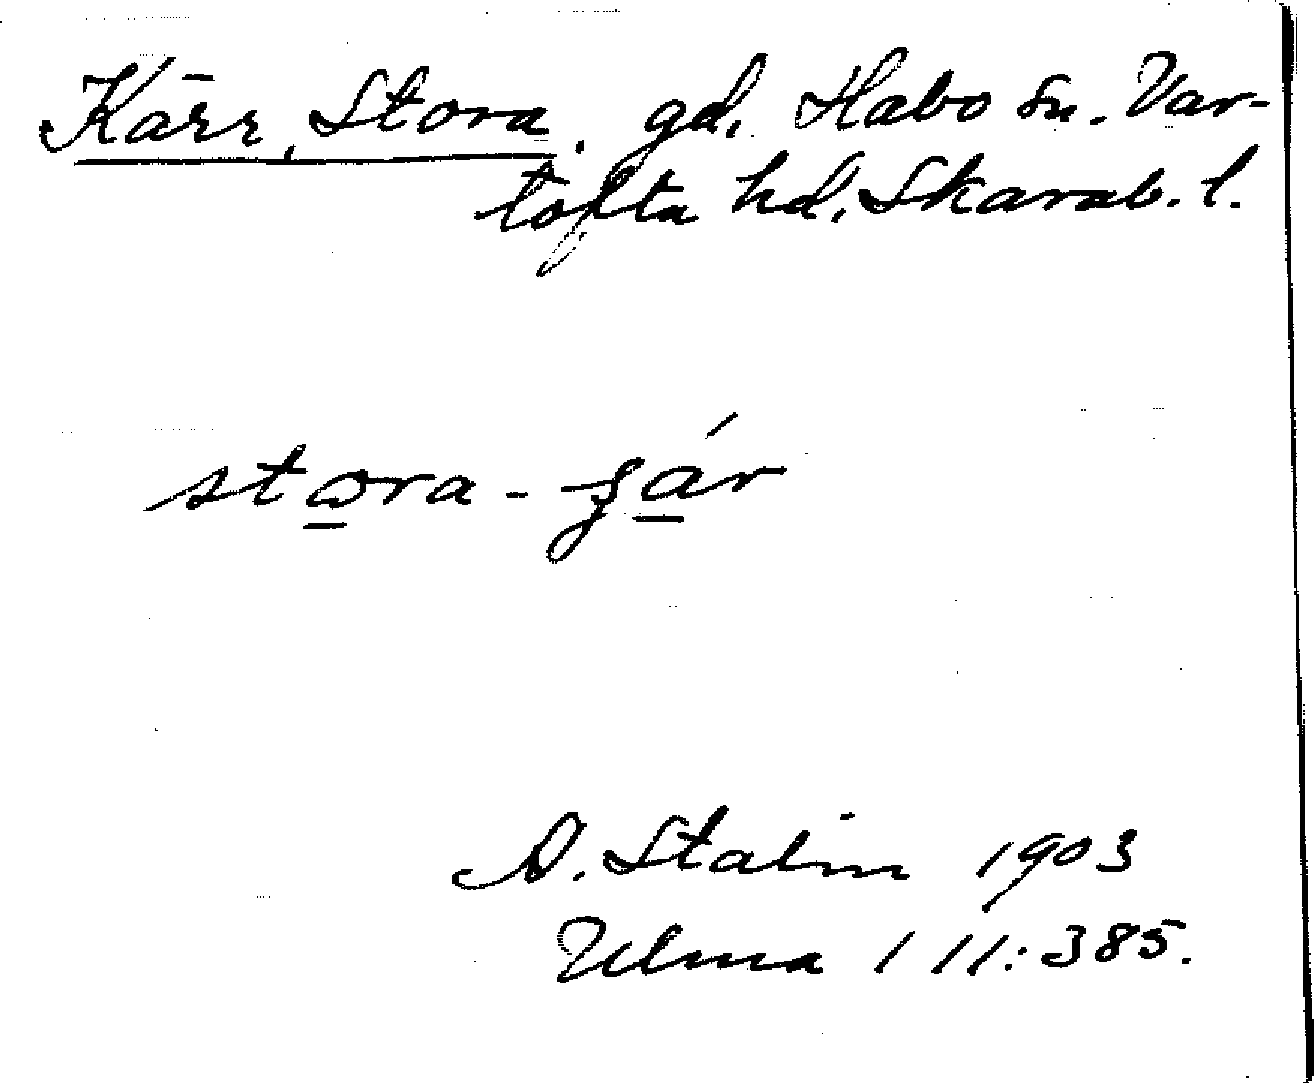 Kärr, Stora. gd. Habo sn. Var-
tofta hd. Skarab. l.
stora - ʂár
A. Stalin 1903
Ulma 1 11:385.